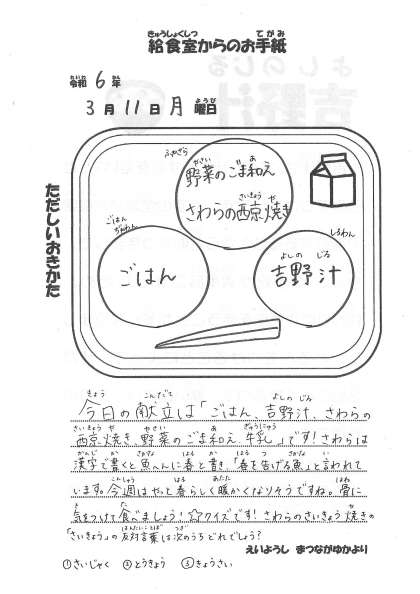 給食室からのお手紙
令和 6 年
3 月 11 日 月 曜日
ただしいおきかた
野菜のごま和え
さわらの西京焼き
ごはん
吉野汁
今日の献立は「ごはん、吉野汁、さわらの
西京焼き 野菜のごま和え 牛乳」です！さわらは
漢字で書くと魚へんに春と書き、「春を告げる魚」と言われて
います。今週はやっと春らしく暖かくなりそうですね。骨に
気をつけて食べましょう！☆クイズです！さわらのさいきょう焼きの
「さいきょう」の反対言葉は次のうちどれでしょう？
えいようし まつながゆかより
①さいじゃく ②とうきょう ③きょうさい